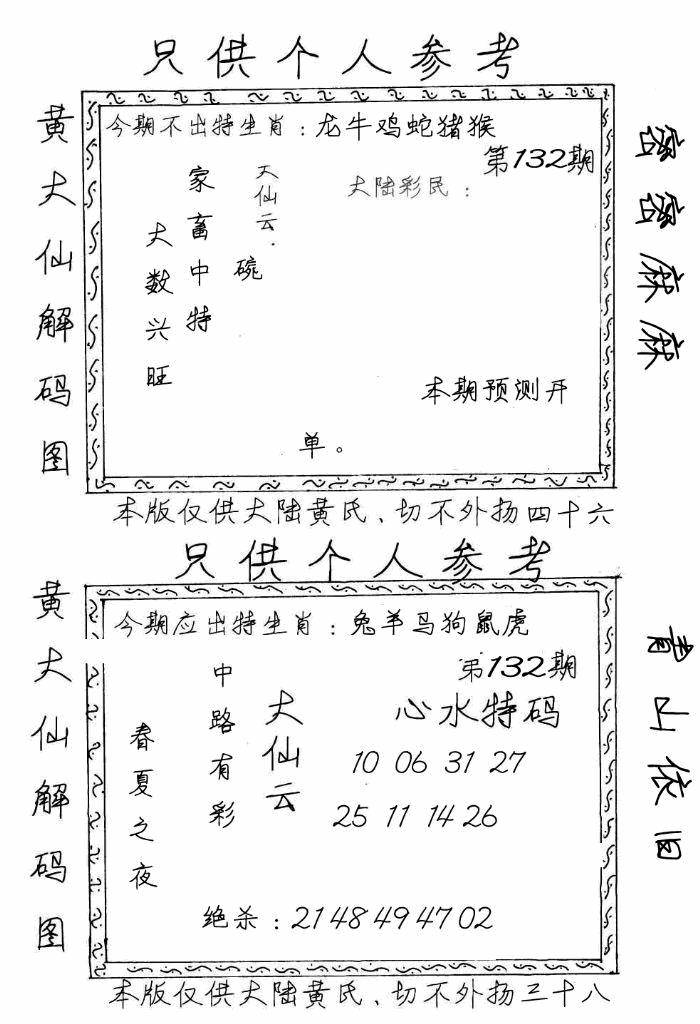 只供个人参考
黄大仙解码图
今期不出特生肖：龙牛鸡蛇猪猴
第132期
大陆彩民：
大仙云．
家畜中特
大数兴旺
碗
本期预测开
单。
密密麻麻
本版仅供大陆黄氏、切不外扬四十六
只供个人参考
黄大仙解码图
今期应出特生肖：兔羊马狗鼠虎
第132期
心水特码
大仙云
中路有彩
春夏之夜
10 06 31 27
25 11 14 26
绝杀：21 48 49 47 02
青山依旧
本版仅供大陆黄氏、切不外扬三十八